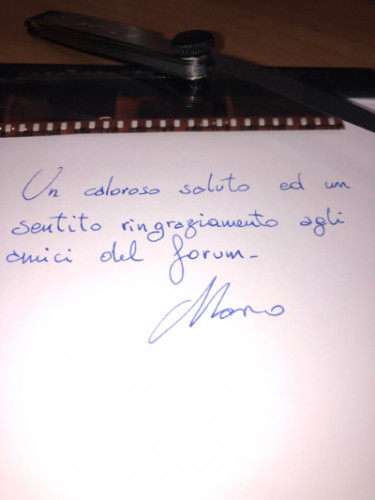 Un caloroso saluto ed un
sentito ringraziamento agli
amici del forum_